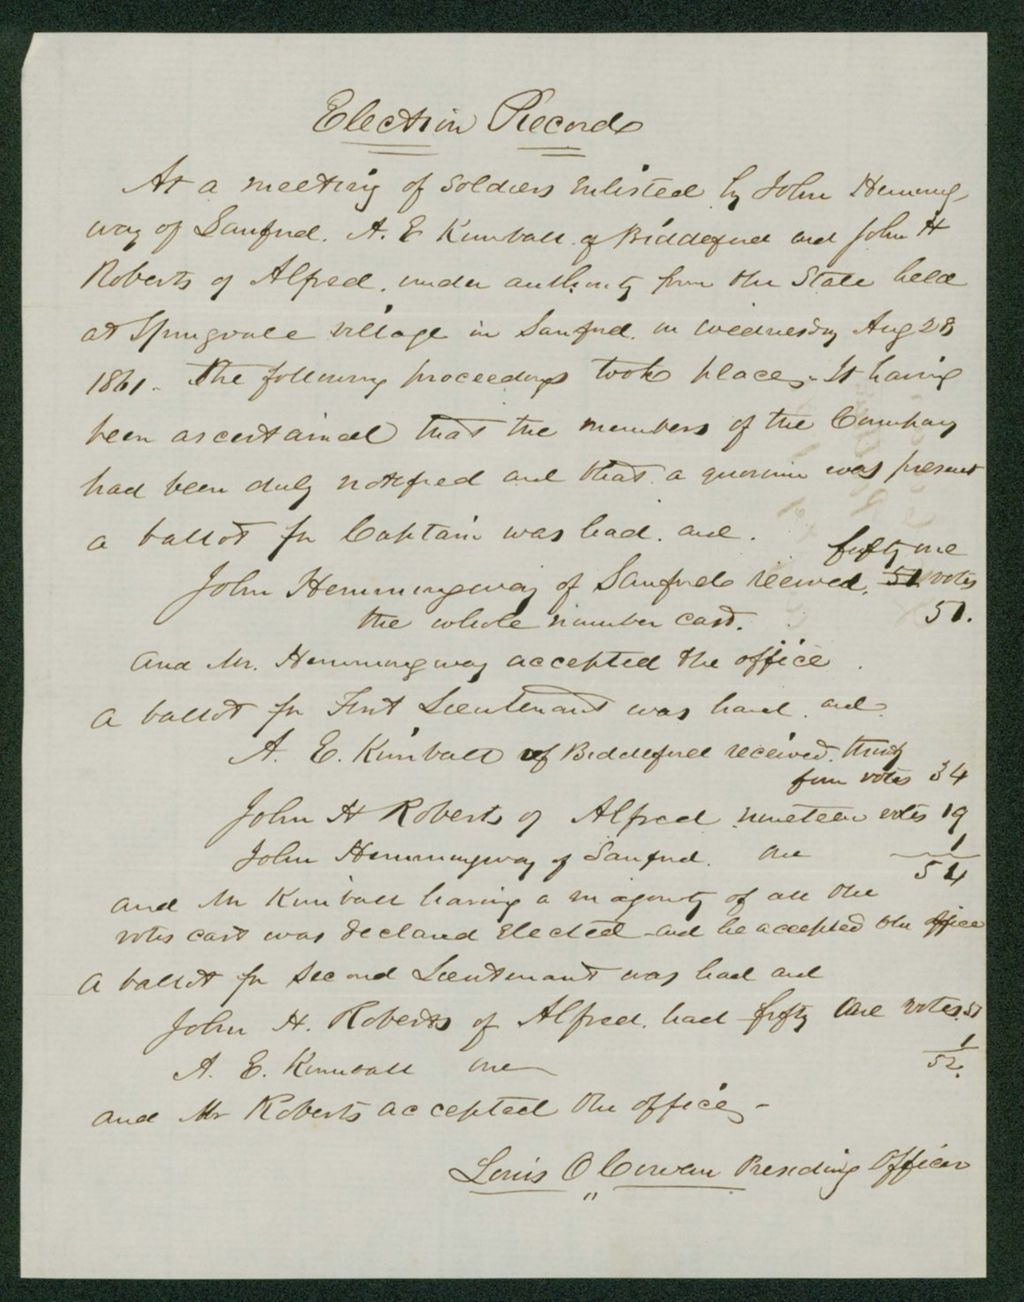 Election Record
At a meeting of Soldiers enlisted by John Hemming-
way of Sanford. A. E Kimball of Biddeford and John H
Roberts of Alfred. under authority from the State held
at Springvale village in Sanford. on Wednesday Aug 28
1861. The following proceedings took place. It having
been ascertained that the members of the Company
had been duly notified and that a quorum was present
a ballot for Captain was had. and.
fifty one
John Hemmingway of Sanford received. 51 votes
the whole number cast. 51.
And Mr. Hemmingway accepted the office.
A ballot for First Lieutenant was had. and.
A. E. Kimball of Biddeford received. thirty
four votes 34
John H Roberts of Alfred nineteen votes 19
John Hemmingway of Sanford. one 1
54
and Mr Kimball having a majority of all the
votes cast was declared elected and he accepted the office
A ballot for Second Lieutenant was had and
John H. Roberts of Alfred. had fifty one votes. 51
A. E. Kimball one 1
52.
and Mr Roberts accepted the office -
Louis O Cowan Presiding Officer